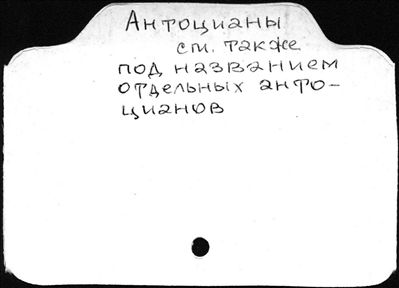 Антоцианы
см. также
под названием
отдельных анто-
цианов